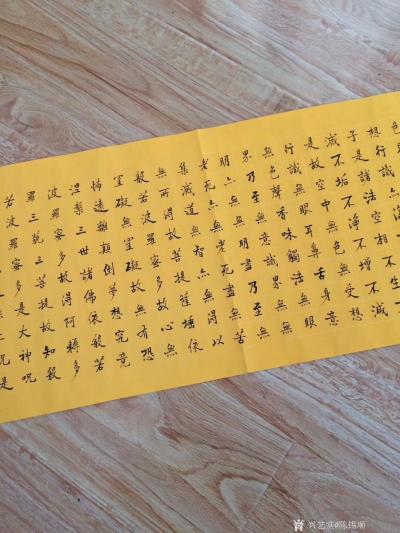 色
想行
子是諸法空相不生不
滅不垢不淨不增不減
是故空中無色無受想
行識無眼耳鼻舌身意
無色聲香味觸法無眼
界乃至無意識界無無
明亦無無明盡乃至無
老死亦無老死盡無苦
集滅道無智亦無得以
無所得故菩提薩埵依
般若波羅蜜多故心無
罣礙無罣礙故無有恐
怖遠離顛倒夢想究竟
涅槃三世諸佛依般若
波羅蜜多故得阿耨多
羅三藐三菩提故知般
若波羅蜜多是大神咒
是
兴艺堂@陈锡顺